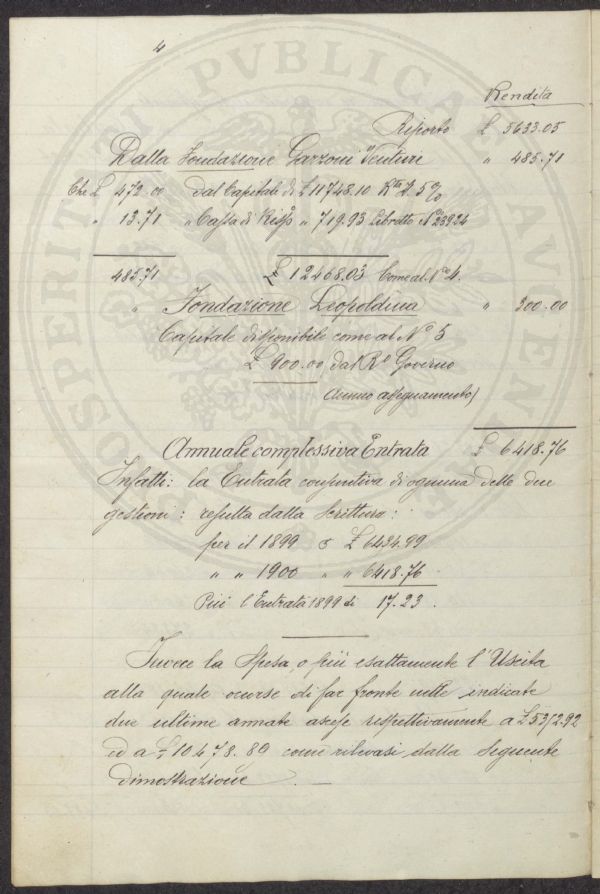 4
Rendita
Riporto £ 5633.05
Dalla Fondazione Garzoni Venturi " 485.71
Che £ 472.00 dal Capitale di £ 11748.10 5%
" 13.71 " Cassa di Rispo " 719.93 Libretto No 23924
485.71 £ 12468.03 Come al No 4.
" Fondazione Leopoldina " 300.00
Capitale disponibile come al No 5
£ 900.00 dal Ro Governo
(Annuo assegnamento)
Annuale complessiva Entrata £ 6418.76
Infatti: la Entrata consuntiva di ognuna delle due
gestioni: resulta dalla Scrittura:
per il 1899 £ 6434.99
" " 1900 " " 6418.76
Più l'Entrata 1899 di 17.23.
Invece la Spesa, o più esattamente l'Uscita
alla quale ocorse di far fronte nelle indicate
due ultime annate ascese respettivamente a £ 5372.92
ed a £ 10478.89 come rilevasi dalla seguente
dimostrazione.
PROSPERITATI PVBLICAE AVGENDAE